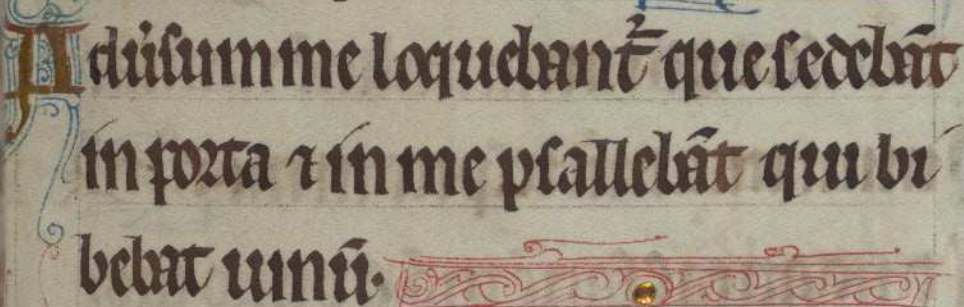 Adũsum me loquebant᷑ que sedebãt
in porta ⁊ in me psallebãt qui bi
bebat uinũ.